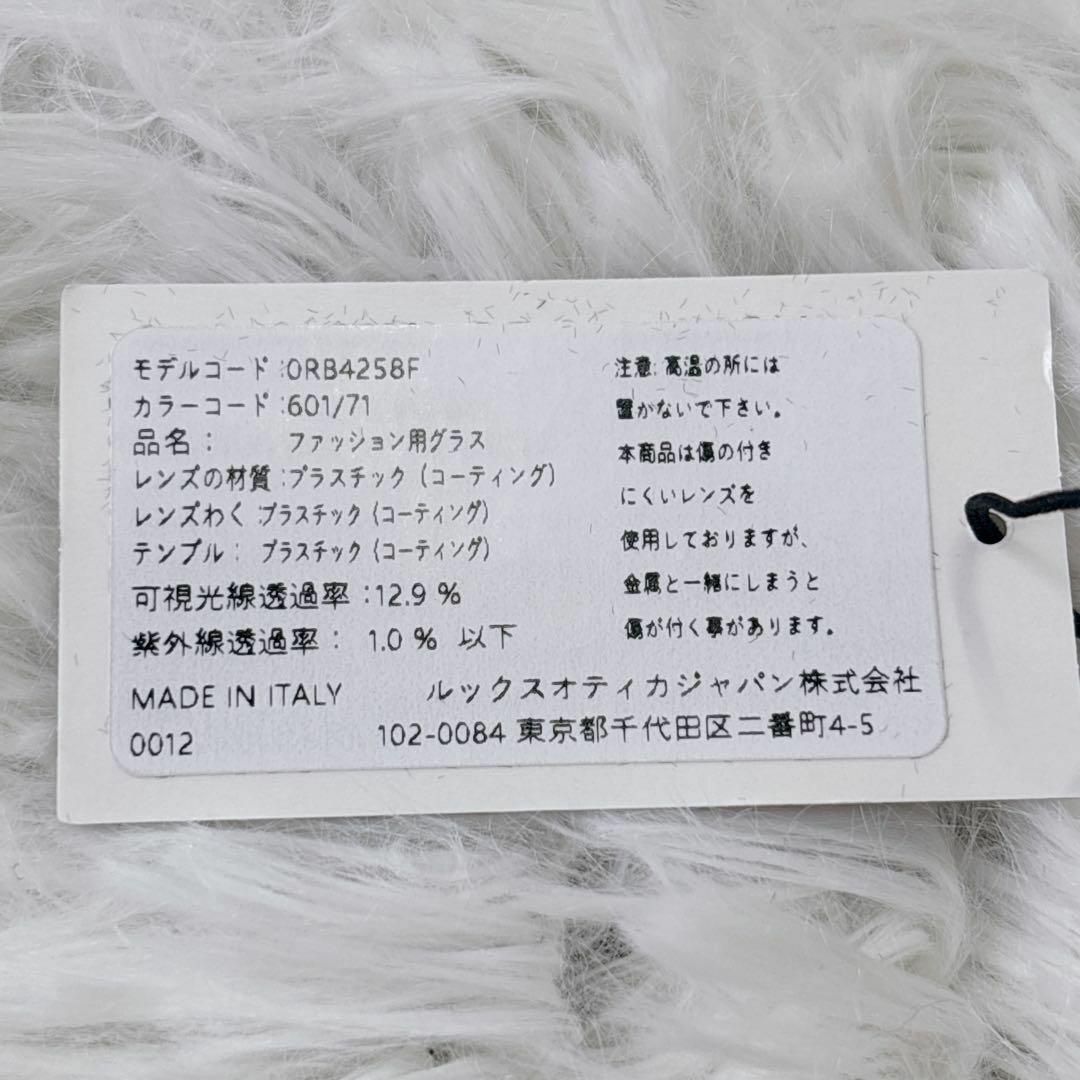 モデルコード :0RB4258F
カラーコード :601/71
品名： ファッション用グラス
レンズの材質 :プラスチック (コーティング)
レンズわく :プラスチック (コーティング)
テンプル： プラスチック (コーティング)
可視光線透過率 :12.9 %
紫外線透過率： 1.0 % 以下
MADE IN ITALY
0012
注意: 高温の所には
置かないで下さい。
本商品は傷の付き
にくいレンズを
使用しておりますが、
金属と一緒にしまうと
傷が付く事があります。
ルックスオティカジャパン株式会社
102-0084 東京都千代田区二番町4-5